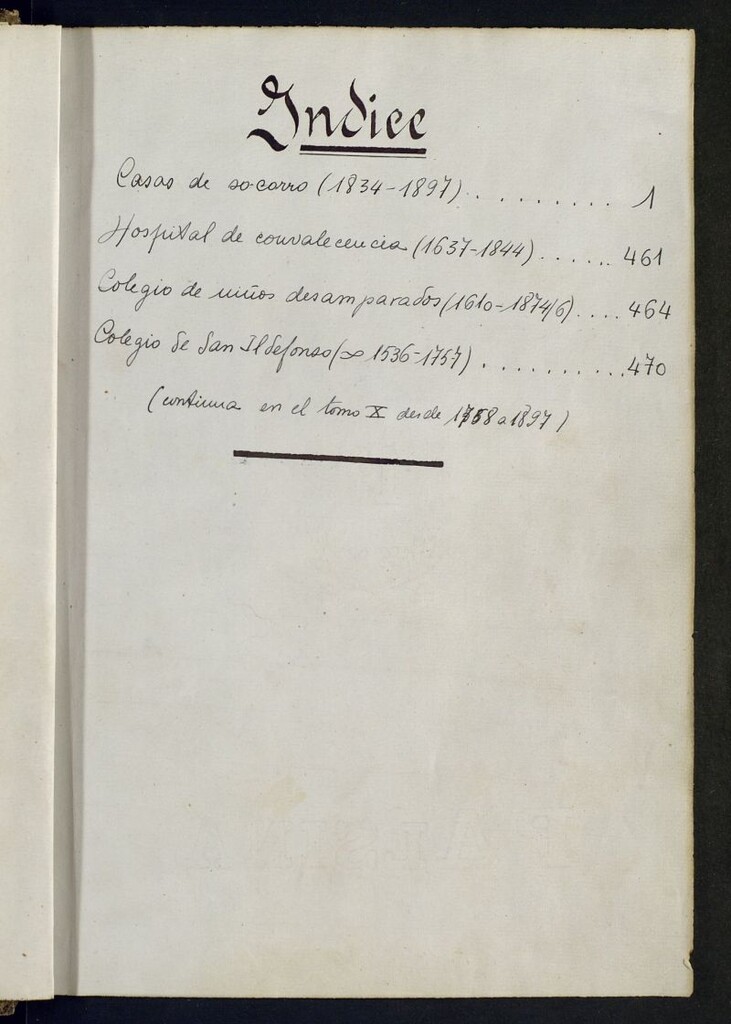 Indice
Casas de socorro (1834-1897) . . . . . . . . . 1
Hospital de convalecencia (1637-1844) . . . . . . 461
Colegio de niños desamparados (1610-1874/6) . . . . 464
Colegio de San Ildefonso (∞ 1536-1757) . . . . . . . . . . 470
(continua en el tomo X desde 1758 a 1897)